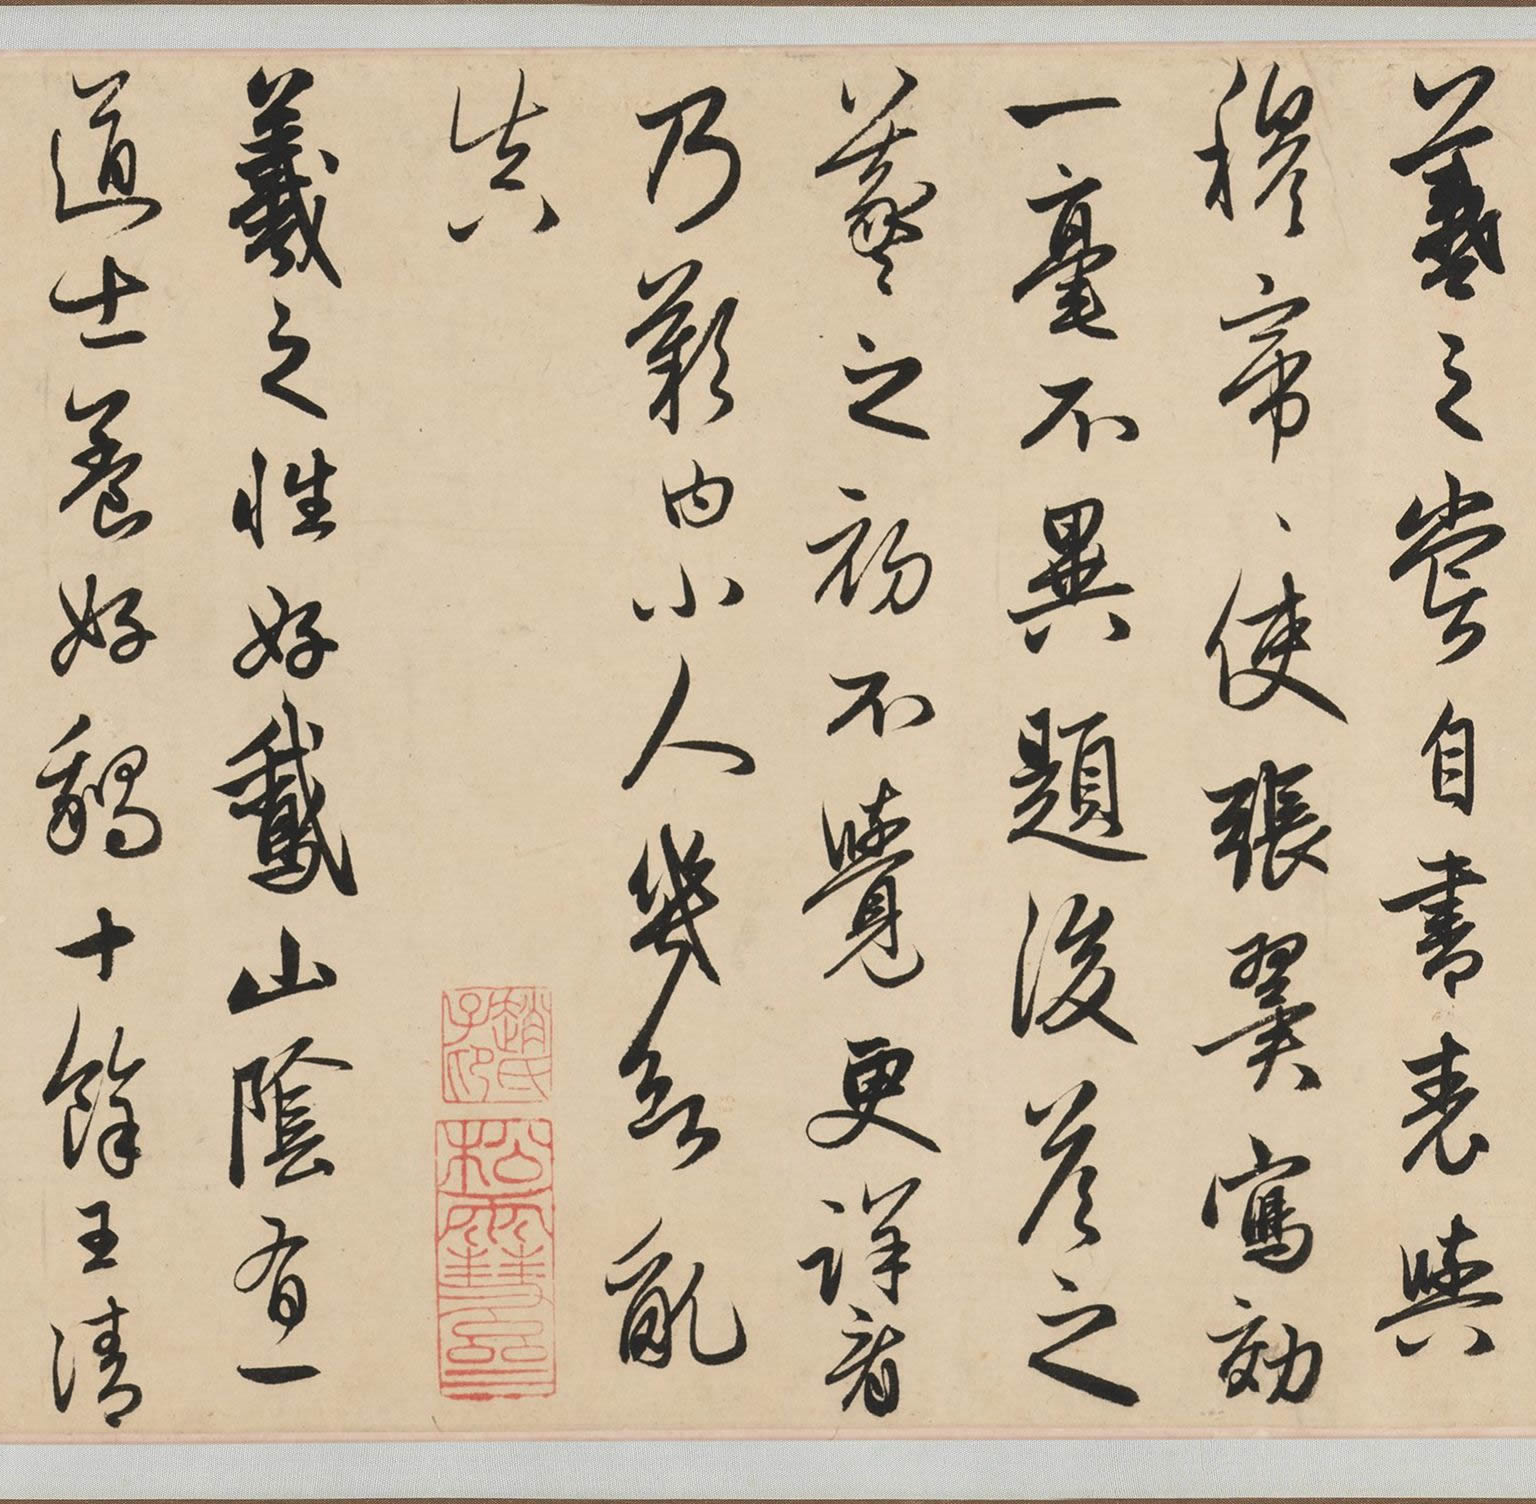 羲之嘗自書表與
穆帝、使張翼寫効
一毫不異題後答之
羲之初不覺更詳看
乃歎曰小人幾欲亂
真
趙氏子印
松雪齋
羲之性好鵞山陰有一
道士養好鵝十餘王清